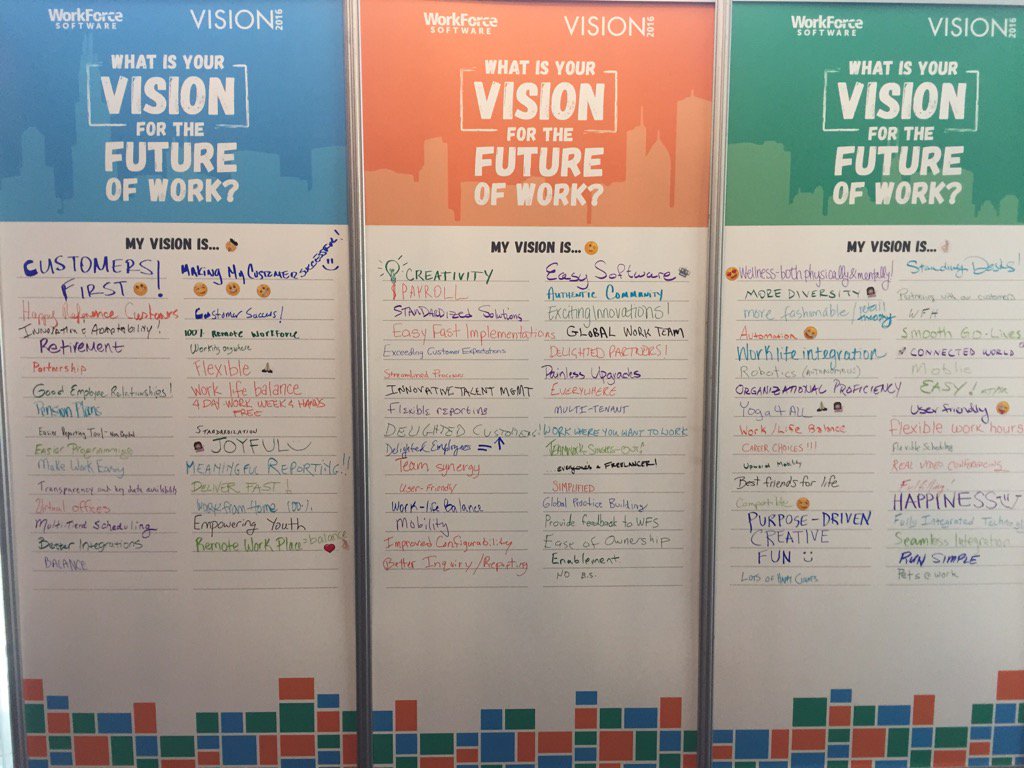 WorkForce
SOFTWARE
VISION 2016
WHAT IS YOUR
VISION
FOR THE
FUTURE
OF WORK?
MY VISION IS...
CUSTOMERS!
FIRST!
Happy Reference Customers
Innovation & Adaptability!
Retirement
Partnership
Good Employee Relationships!
Pension Plans
Easier Reporting Tool -
Easier Programming
Make Work Easy
Transparency out key data availability
Virtual offices
Multi-Trend Scheduling
Better Integrations
BALANCE
MAKING My CUSTOMER SUCCESSFUL!
Customer Success!
100% Remote Workforce
Working anywhere
Flexible
Work life balance
4 DAY WORK WEEK & HANDS
FREE
STANDARDIZATION
JOYFUL
MEANINGFUL REPORTING!!
DELIVER FAST!
Work from Home 100%
Empowering Youth
Remote Work Place = balance
WorkForce
SOFTWARE
VISION 2016
WHAT IS YOUR
VISION
FOR THE
FUTURE
OF WORK?
MY VISION IS...
CREATIVITY
PAYROLL
STANDARDIZED Solutions
Easy Fast Implementations
Exceeding Customer Expectations
Streamlined Processes
INNOVATIVE TALENT MGMT
Flexible reporting
DELIGHTED Customers!
Delighted Employees =
Team synergy
User-Friendly
Work-life balance
Mobility
Improved Configurability
Better Inquiry/Reporting
Easy Software
AUTHENTIC COMMUNITY
Exciting Innovations!
GLOBAL WORK TEAM
DELIGHTED PARTNERS!
Painless Upgrades
EVERYWHERE
MULTI-TENANT
WORK WHERE YOU WANT TO WORK
Teamwork
everyone's a FREELANCER!
SIMPLIFIED
Global Practice Building
Provide feedback to WFS
Ease of Ownership
Enablement
NO B.S.
WorkForce
SOFTWARE
VISION 2016
WHAT IS YOUR
VISION
FOR THE
FUTURE
OF WORK?
MY VISION IS...
Wellness-both physically & mentally!
MORE DIVERSITY
more fashionable/retail
Automation
Work life integration
Robotics (AUTONOMOUS)
ORGANIZATIONAL PROFICIENCY
Yoga 4 ALL
Work/Life Balance
CAREER CHOICES!!!
Upward Mobility
Best friends for life
Compatible
PURPOSE-DRIVEN
CREATIVE
FUN
LOTS OF HAPPY CLIENTS
Standing Desks!
Partnering with our customers
WFH
Smooth Go-Lives
CONNECTED WORLD
Mobile
EASY!
User friendly
flexible work hours
Flexible Scheduling
REAL VIDEO CONFERENCING
Fulfilling!
HAPPINESS
Fully Integrated
Seamless Integration
RUN SIMPLE
Pets @ work